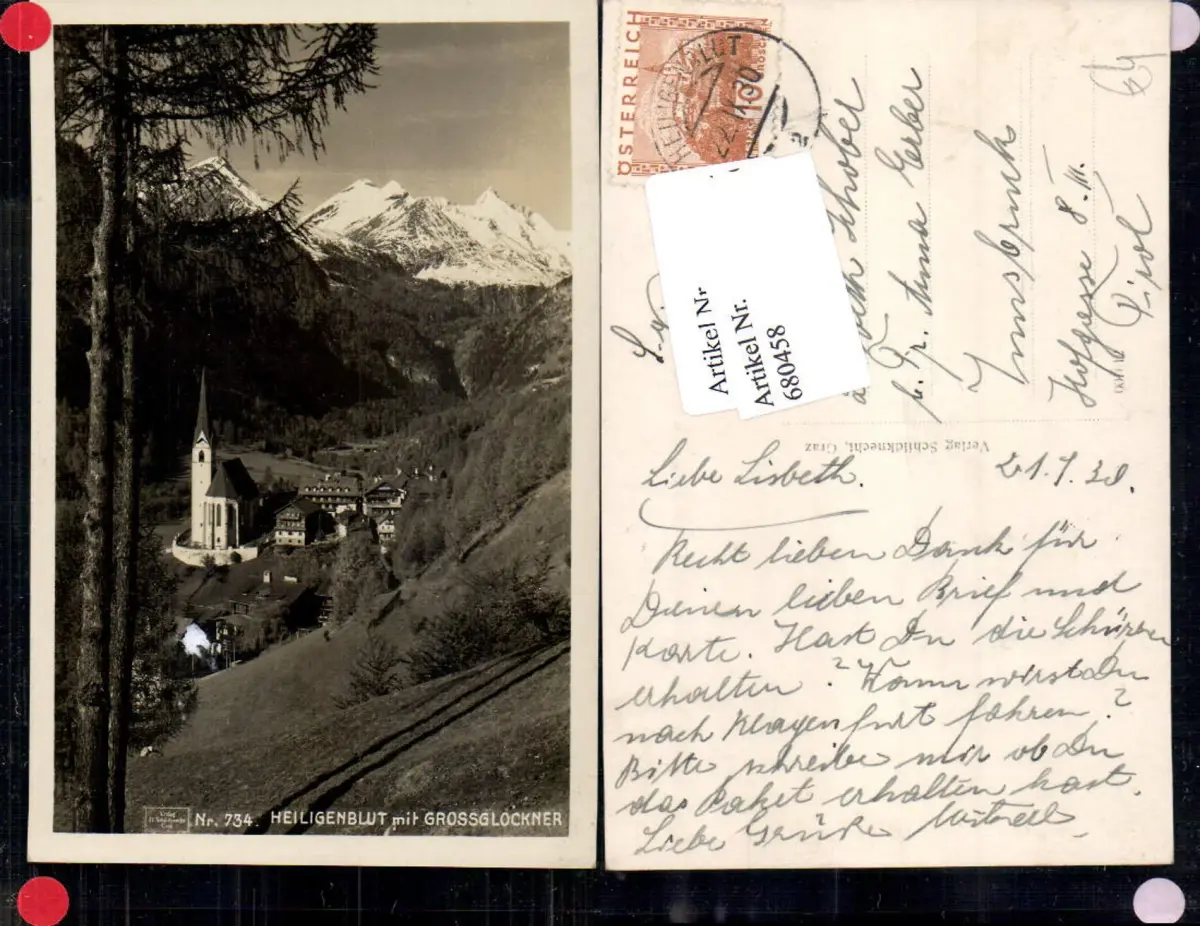 Nr. 734. HEILIGENBLUT mit GROSSGLOCKNER
ÖSTERREICH
HEILIGENBLUT
Artikel Nr
Artikel Nr.
680458
Schober
Anna Erber
Innsbruck
Hofgasse 8. III.
Tirol
Verlag Schlidknecht, Graz
Liebe Lisbeth.
21.9.30.
Recht lieben Dank für
Deinen lieben Brief und
Karte. Hast Du die Schürzen
erhalten? Wann wirst Du
nach Klagenfurt fahren?
Bitte schreibe mir ob Du
das Paket erhalten hast.
Liebe Grüße